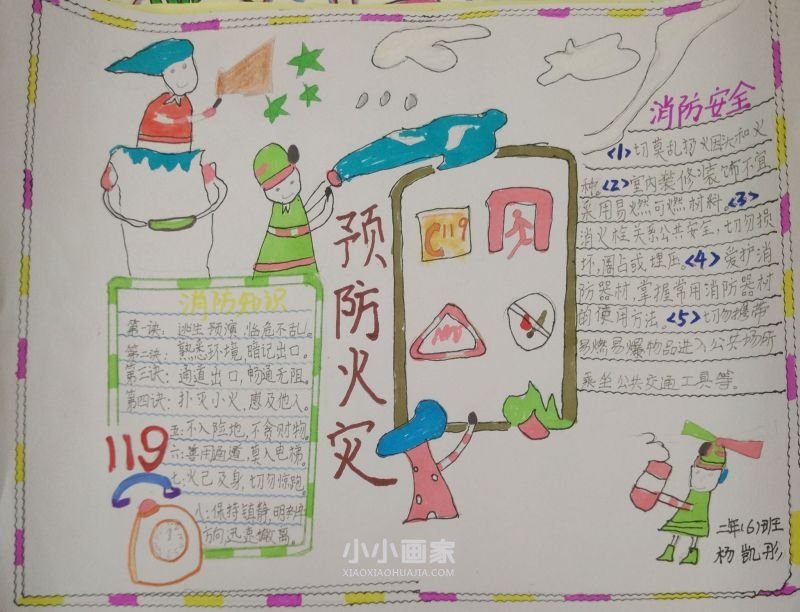 消防安全
<1>切莫乱扔烟头和火
种<2>室内装修装饰不宜
采用易燃可燃材料.<3>
消火栓关系公共安全,切勿损
坏,圈占或埋压。<4>爱护消
防器材,掌握常用消防器材
的使用方法。<5>切勿携带
易燃易爆物品进入公共场所
乘坐公共交通工具等。
预防火灾
119
消防知识
第一诀:逃生预演,临危不乱。
第二诀:熟悉环境,暗记出口。
第三诀:通道出口,畅通无阻。
第四诀:扑灭小火,惠及他人。
五:不入险地,不贪财物
六:善用通道,莫入电梯。
七:火已及身,切勿惊跑
八:保持镇静,明辨
方向迅速撤离。
119
二年(6)班
杨凯彤
小小画家
XIAOXIAOHUAJIA.COM